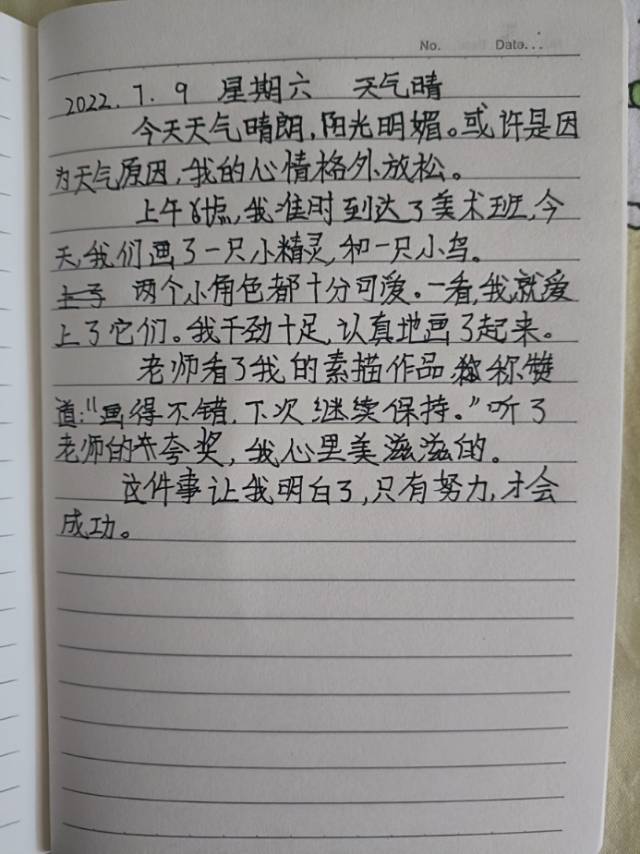 No. Date...
2022.7.9 星期六 天气晴
今天天气晴朗,阳光明媚。或许是因
为天气原因,我的心情格外放松。
上午8点,我准时到达了美术班,今
天,我们画了一只小精灵,和一只小鸟。
两个小角色都十分可爱。一看,我就爱
上了它们。我干劲十足,认真地画了起来。
老师看了我的素描作品 称赞
道:"画得不错,下次继续保持。"听了
老师的夸奖,我心里美滋滋的。
这件事让我明白了,只有努力,才会
成功。